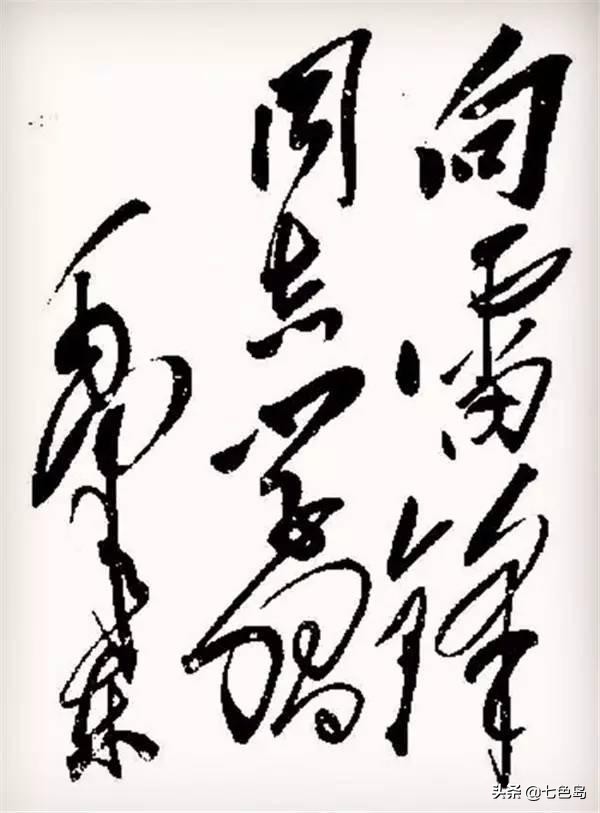 向雷锋
同志学习
毛泽东
头条 @七色岛